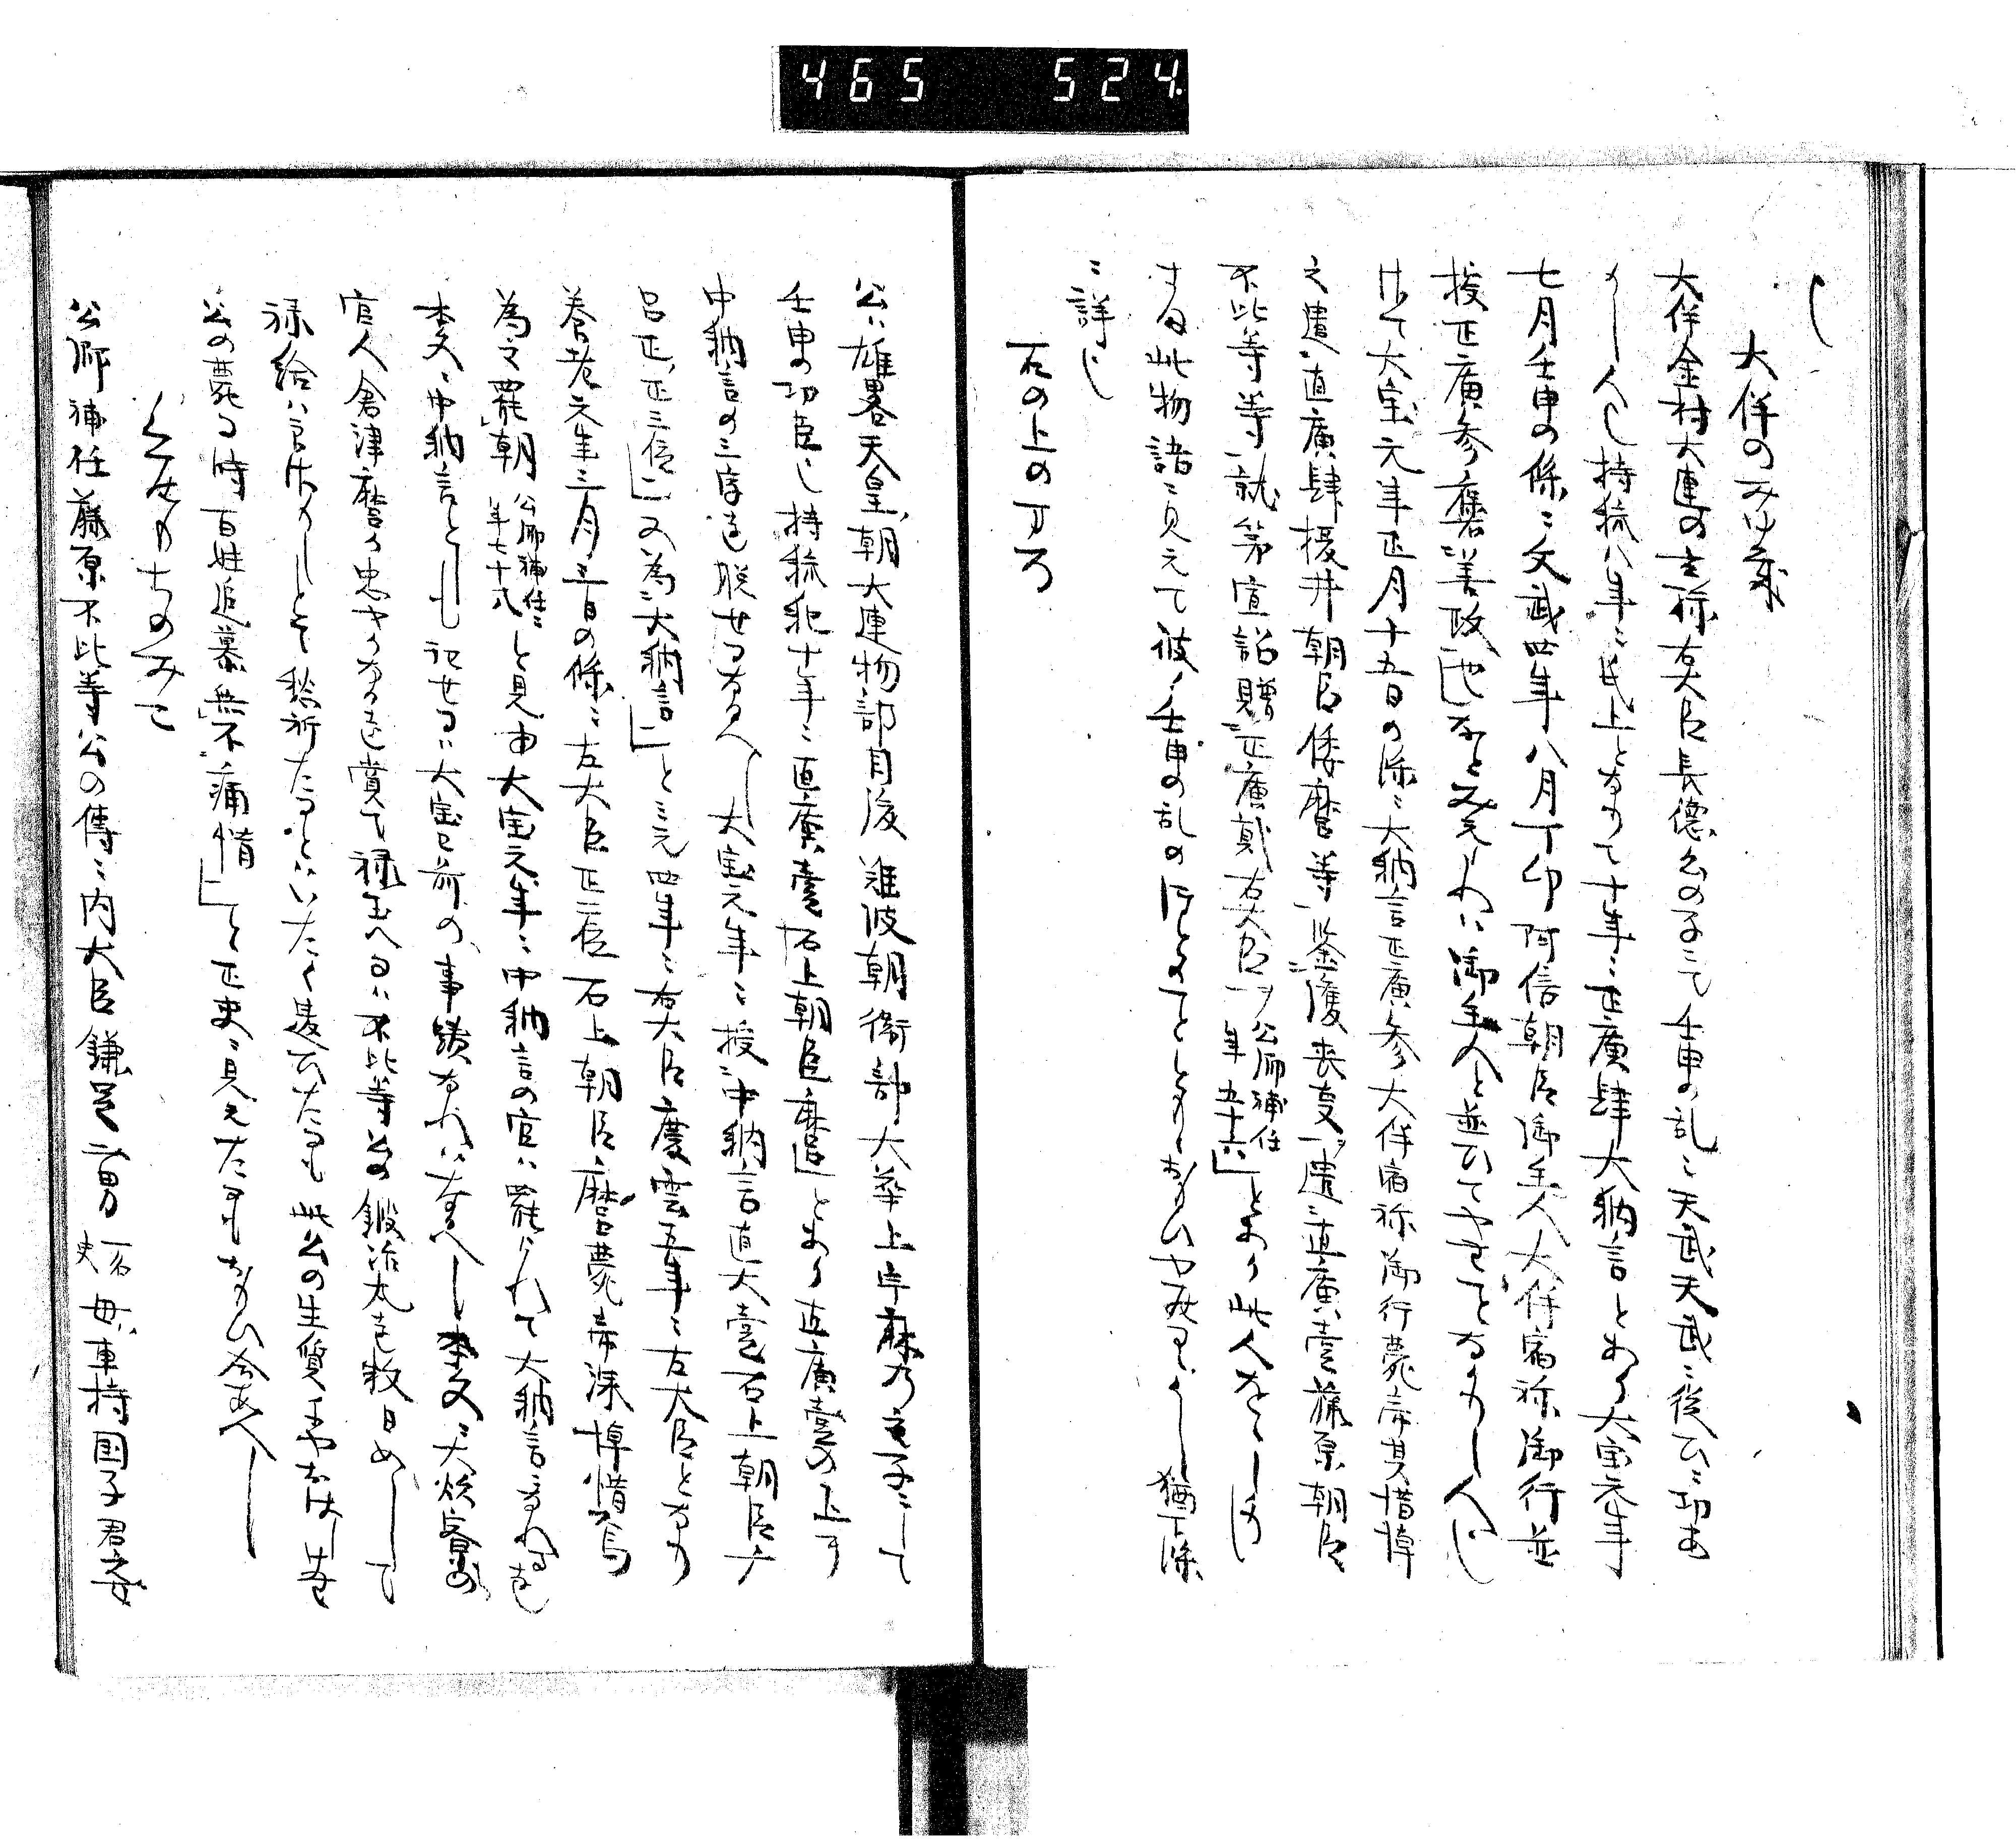 465 524
し
大伴のみゆき
大伴金村大連の玄孫右大臣長徳公の子にて壬申の乱ニ天武天武ニ従ひ功あ
りし人也持統八年ニ氏上となりて十年ニ正廣肆大納言とあり大宝元年
七月壬申の條ニ文武四年八月丁卯阿倍朝臣御主人大伴宿祢御行並
授正廣参褒善政也」なとみえれハ御主人と並ひてやむことなかりし人也
けて大宝元年正月十五日の條ニ大納言正廣参大伴宿祢御行薨帝甚惜悼
之遣直廣肆榎井朝臣倭麿等監護喪事遣直廣壹藤原朝臣
不比等等就第宣詔贈正廣貳右大臣 公卿補任ヲ年五十六」とあり此人を
する此物語ニ見えて彼壬申の乱の 猶下條
ニ詳し
石の上のまろ
公ハ雄畧天皇ノ朝大連物部目後難波朝衛部大華上宇麻乃之子にして
壬申の功臣し持統紀十年ニ直廣壹石上朝臣麿」とあり直廣壹の上ニ
中納言の三字を脱せるなるへし大宝元年ニ授中納言直大壹石上朝臣麿
呂正正三位」又為大納言」とミえ四年ニ右大臣慶雲五年ニ左大臣となり
養老元年三月三日の條ニ左大臣正二位石上朝臣麿薨帝深悼惜焉
為之罷朝 公卿補任ニ年七十八 と見ゆ大宝元年ニ中納言の官ハ罷られて大納言なれるを
本文ニ中納言としも記せるハ大宝已前の事蹟なれハなるへし本文ニ大炊寮の
官人倉津麿か忠やかなるを賞て禄玉へるハ不比等公の鍛冶丈を数日めして
禄給ハさりしとて愁祈たるとハいたく違ひたるも此公の生質
公の薨る時百姓追慕無不痛惜」と正史ニ見えたるもおもひ合すへし
くらもちのみこ
公卿補任藤原不比等公の傳ニ内大臣鎌足二男 一名史 母ハ車持国子君之女